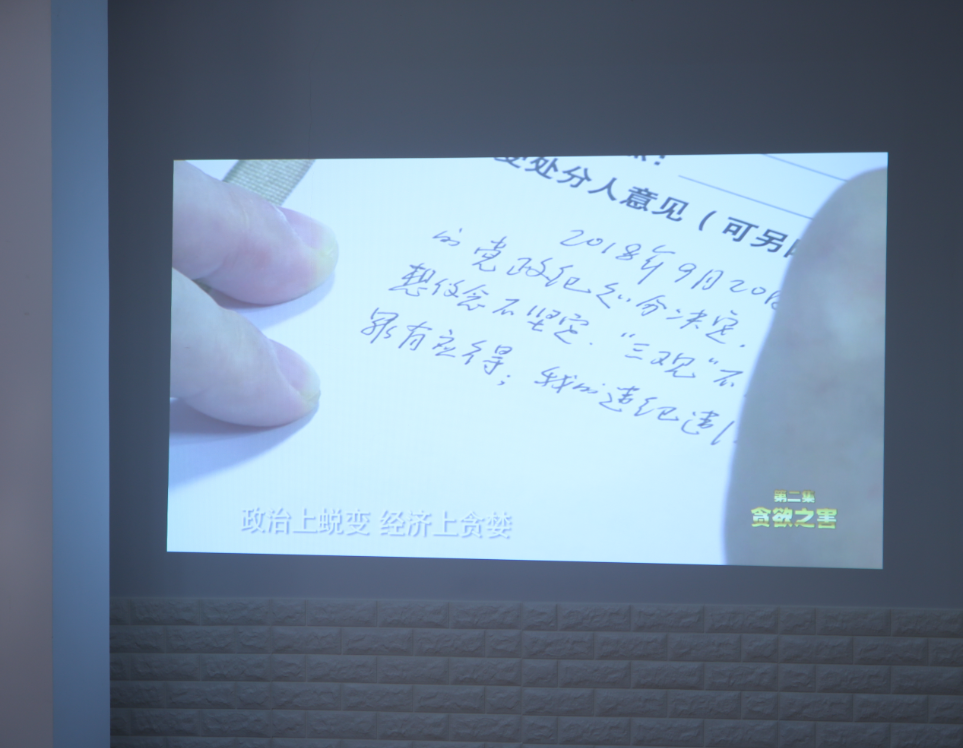 受处分人意见（可另
2018年9月20日
的党政纪处分决定.
想信念不坚定."三观"不
罪有应得；我的违纪违
政治上蜕变 经济上贪婪
第二集
贪欲之害